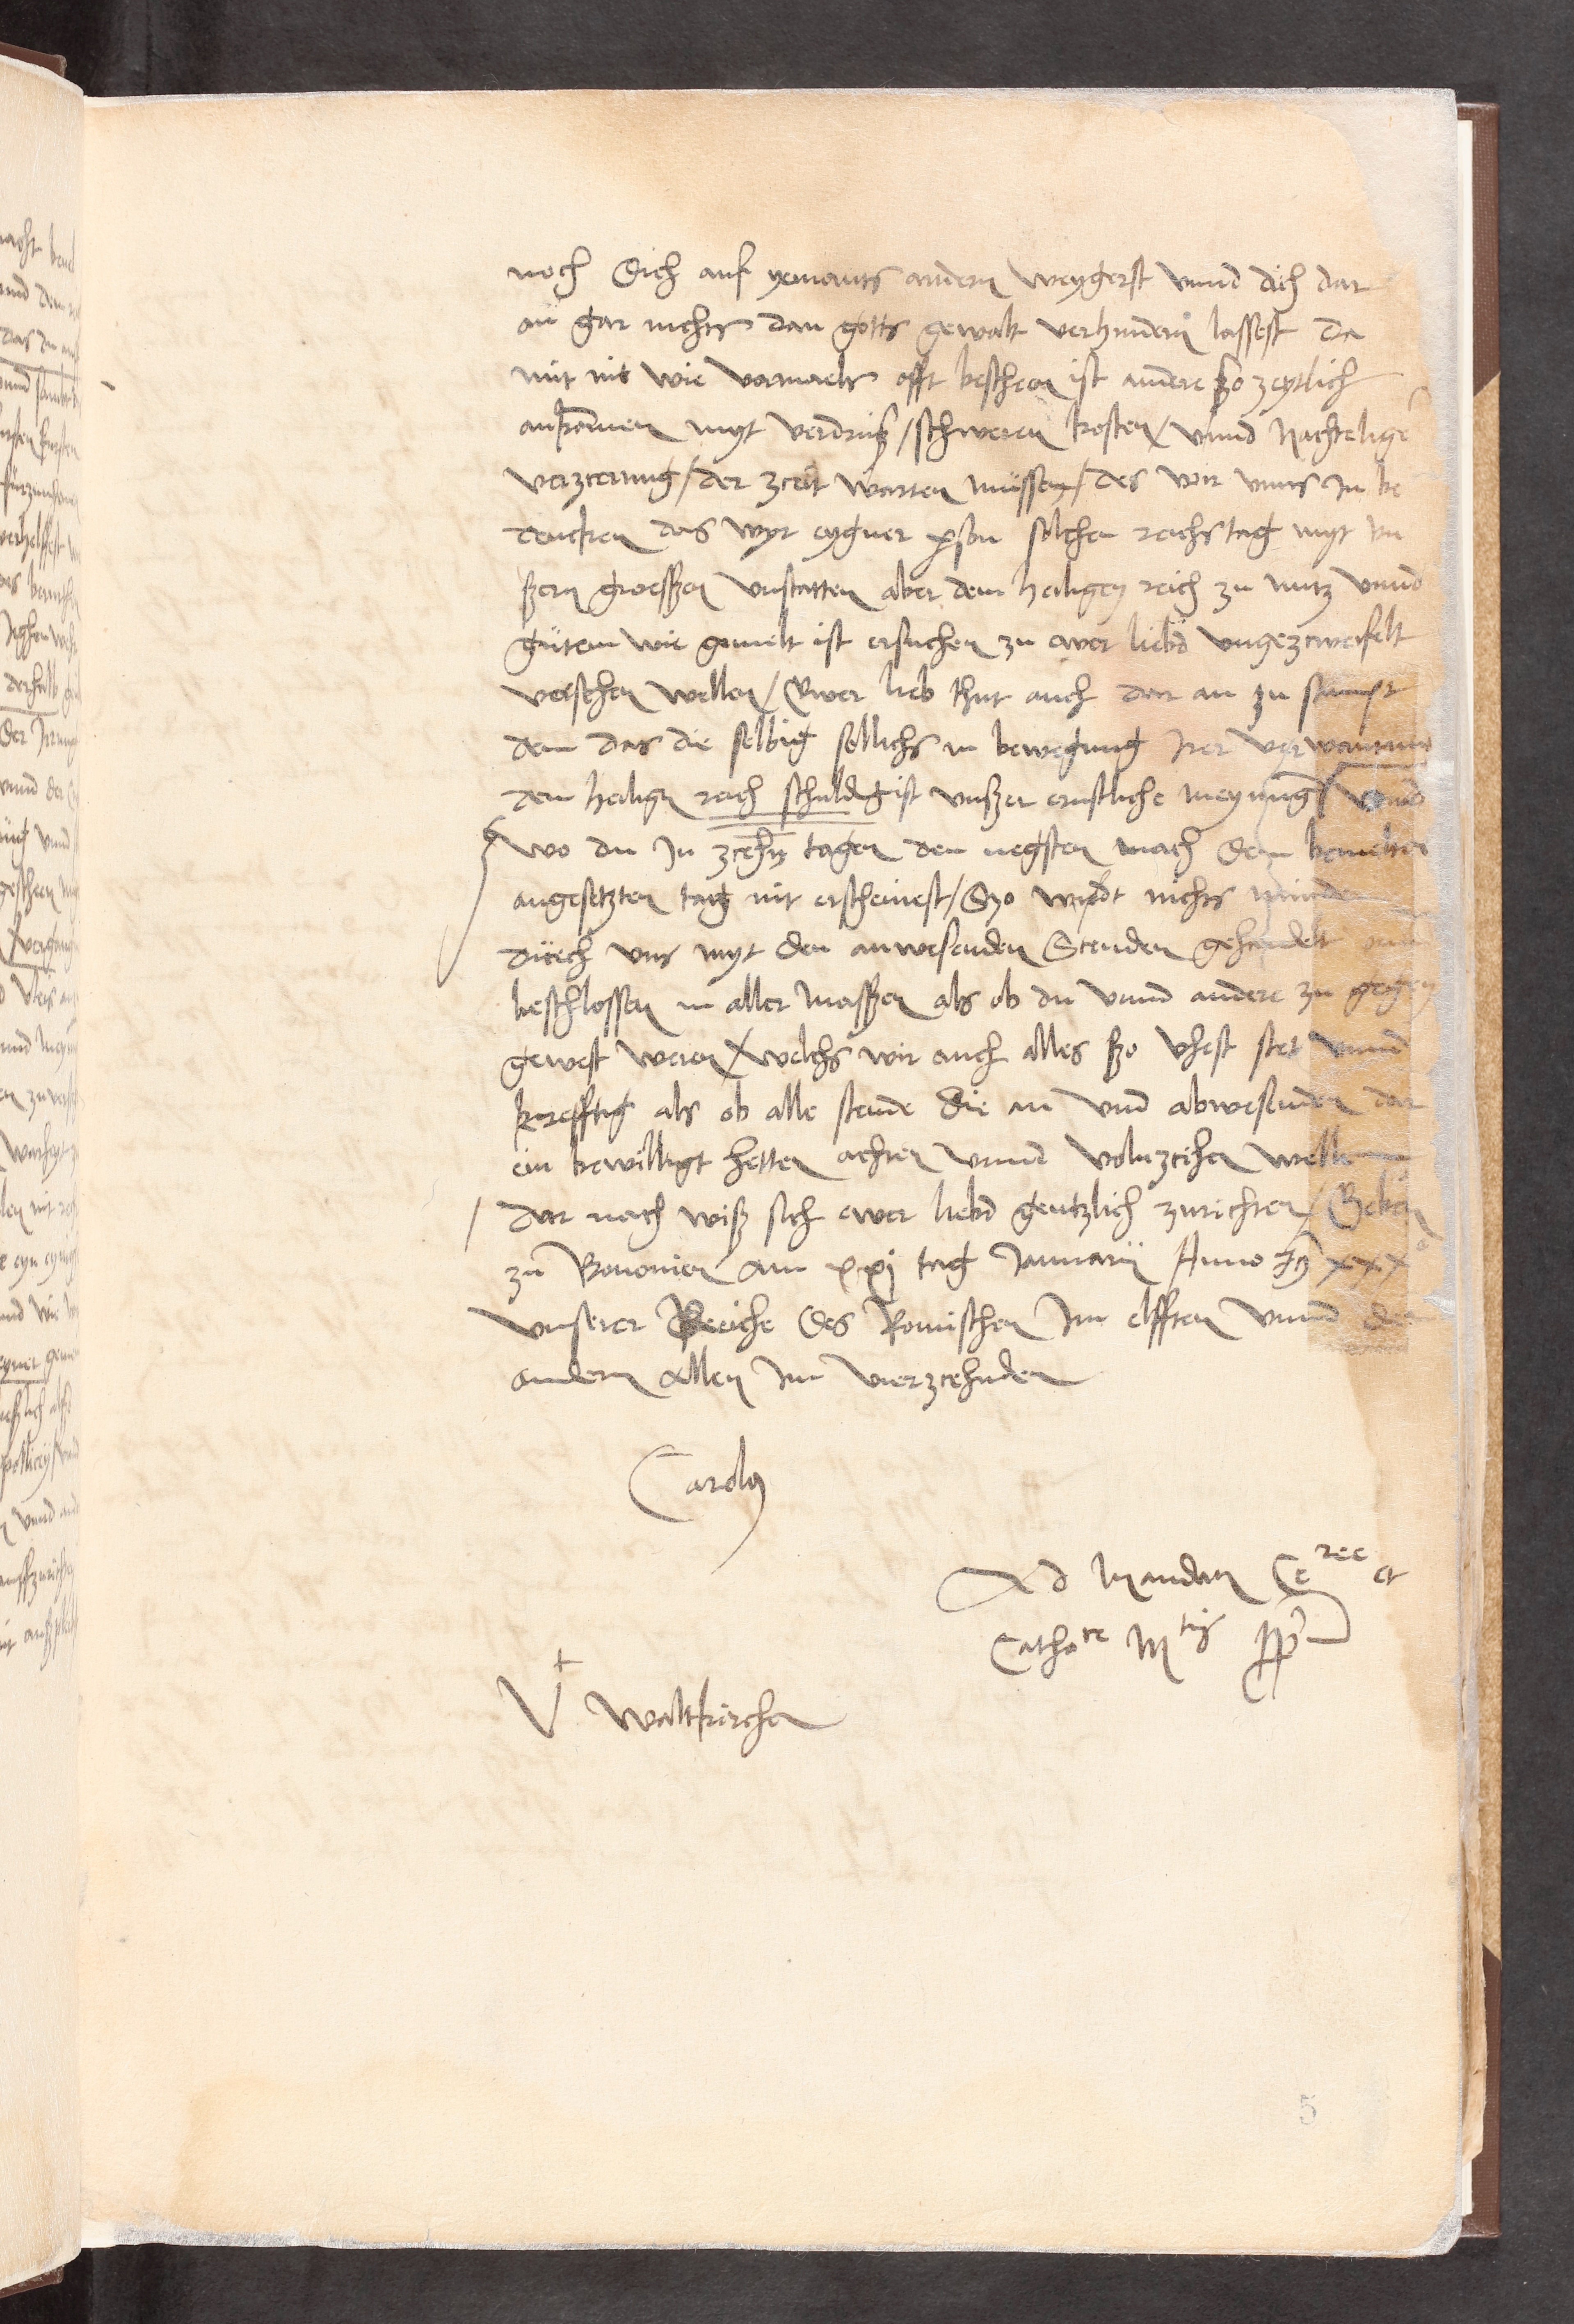 noch dich auf yemants andern weygerst vnnd dich dar
an gar nichts dan gotts gewalt verhindern lassest da
mit nit wie vormaels offt bescheen ist andere ßo zeytlich
ankommen myt verdrusß / schweren kosten / vnnd nachteliger
verzcerung / der zceit warten müssen / des wir vnns in be
dencken das wyr eygner person solchen reichs tag myt vn
ßern groesßen vnstatten aber dem heiligen reich zu nutz vnnd
gütem wie gemelt ist ersuchen zu ewer liebd vngezcweifelt
versehen wellen / Ewer lieb thut auch dar an zu sampt
dem das die selbig sollichs in bewegung irer verwantnus
dem heiligen reich schuldig ist vnßer ernstliche meynung / vnnd
wo du in zcehn tagen den negsten nach dem bemelten
angesetzten tag nit erscheinest / Szo wirdt nichts minder
dürch vns myt den anwesenden Stenden gehandelt vnd
beschlossen in aller masßen als ob du vnnd andere zu gegen
gewest weren / welchs wir auch alles ßo vhest stet vnnd
krefftig als ob alle stende die an vnd abwesenden dar
ein bewilligt hetten achten vnnd volnzcihen wellen
/ dar nach wiß sich ewer liebd gentzlich zurichten / Geben
zu Bononien am xxj tag Januarii Anno xxx
vnserer Reiche des Romischen im elfften vnnd der
andern allen im vierzcehnden
Carolus
Ad mandatum Ce ree et
Catho ce M tis pp
Vt Waltkirchen
5